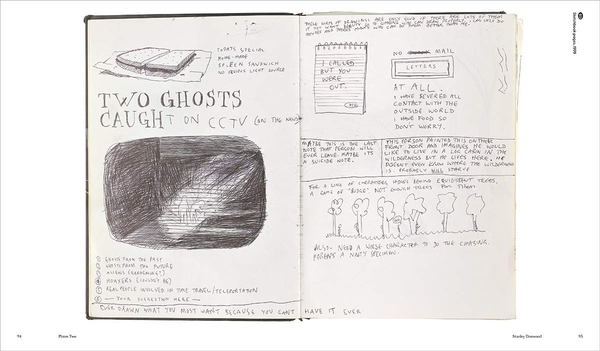 TODAYS SPECIAL
HOME-MADE
SPLEEN SANDWICH
NO OBVIOUS LIGHT SOURCE
TWO GHOSTS
CAUGHT ON CCTV (ON THE NEWS)
GHOSTS FROM THE PAST
GHOSTS FROM THE FUTURE
ALIENS
HOAXERS
REAL PEOPLE INVOLVED IN TIME TRAVEL/TELEPORTATION
— YOUR SUGGESTION HERE —
EVER DRAWN WHAT YOU MOST WANT BECAUSE YOU CAN'T HAVE IT EVER
I CALLED
BUT YOU
WERE
OUT.
NO MAIL
LETTERS
AT ALL.
I HAVE SEVERED ALL
CONTACT WITH THE
OUTSIDE WORLD
I HAVE FOOD SO
DONT WORRY.
MAYBE THIS IS THE LAST
NOTE THAT PERSON WILL
EVER LEAVE. MAYBE ITS
A SUICIDE NOTE.
THIS PERSON PAINTED THIS ON THEIR
FRONT DOOR AND IMAGINES HE WOULD
LIKE TO LIVE IN A LOG CABIN IN THE
WILDERNESS BUT HE LIVES HERE. HE
DOESNT EVEN KNOW WHERE THE WILDERNESS
IS. PROBABLY WILL STARVE
FOR A LINE OF CHARACTERS HIDING BEHIND EQUIDISTENT TREES.
A GAME OF "BUDGE". NOT ENOUGH TREES FOR THEM
ALSO NEED A WORSE CHARACTER TO DO THE CHASING.
PERHAPS A NASTY SPECIMEN.
94
Pluton Two
Stanley Donwood
95